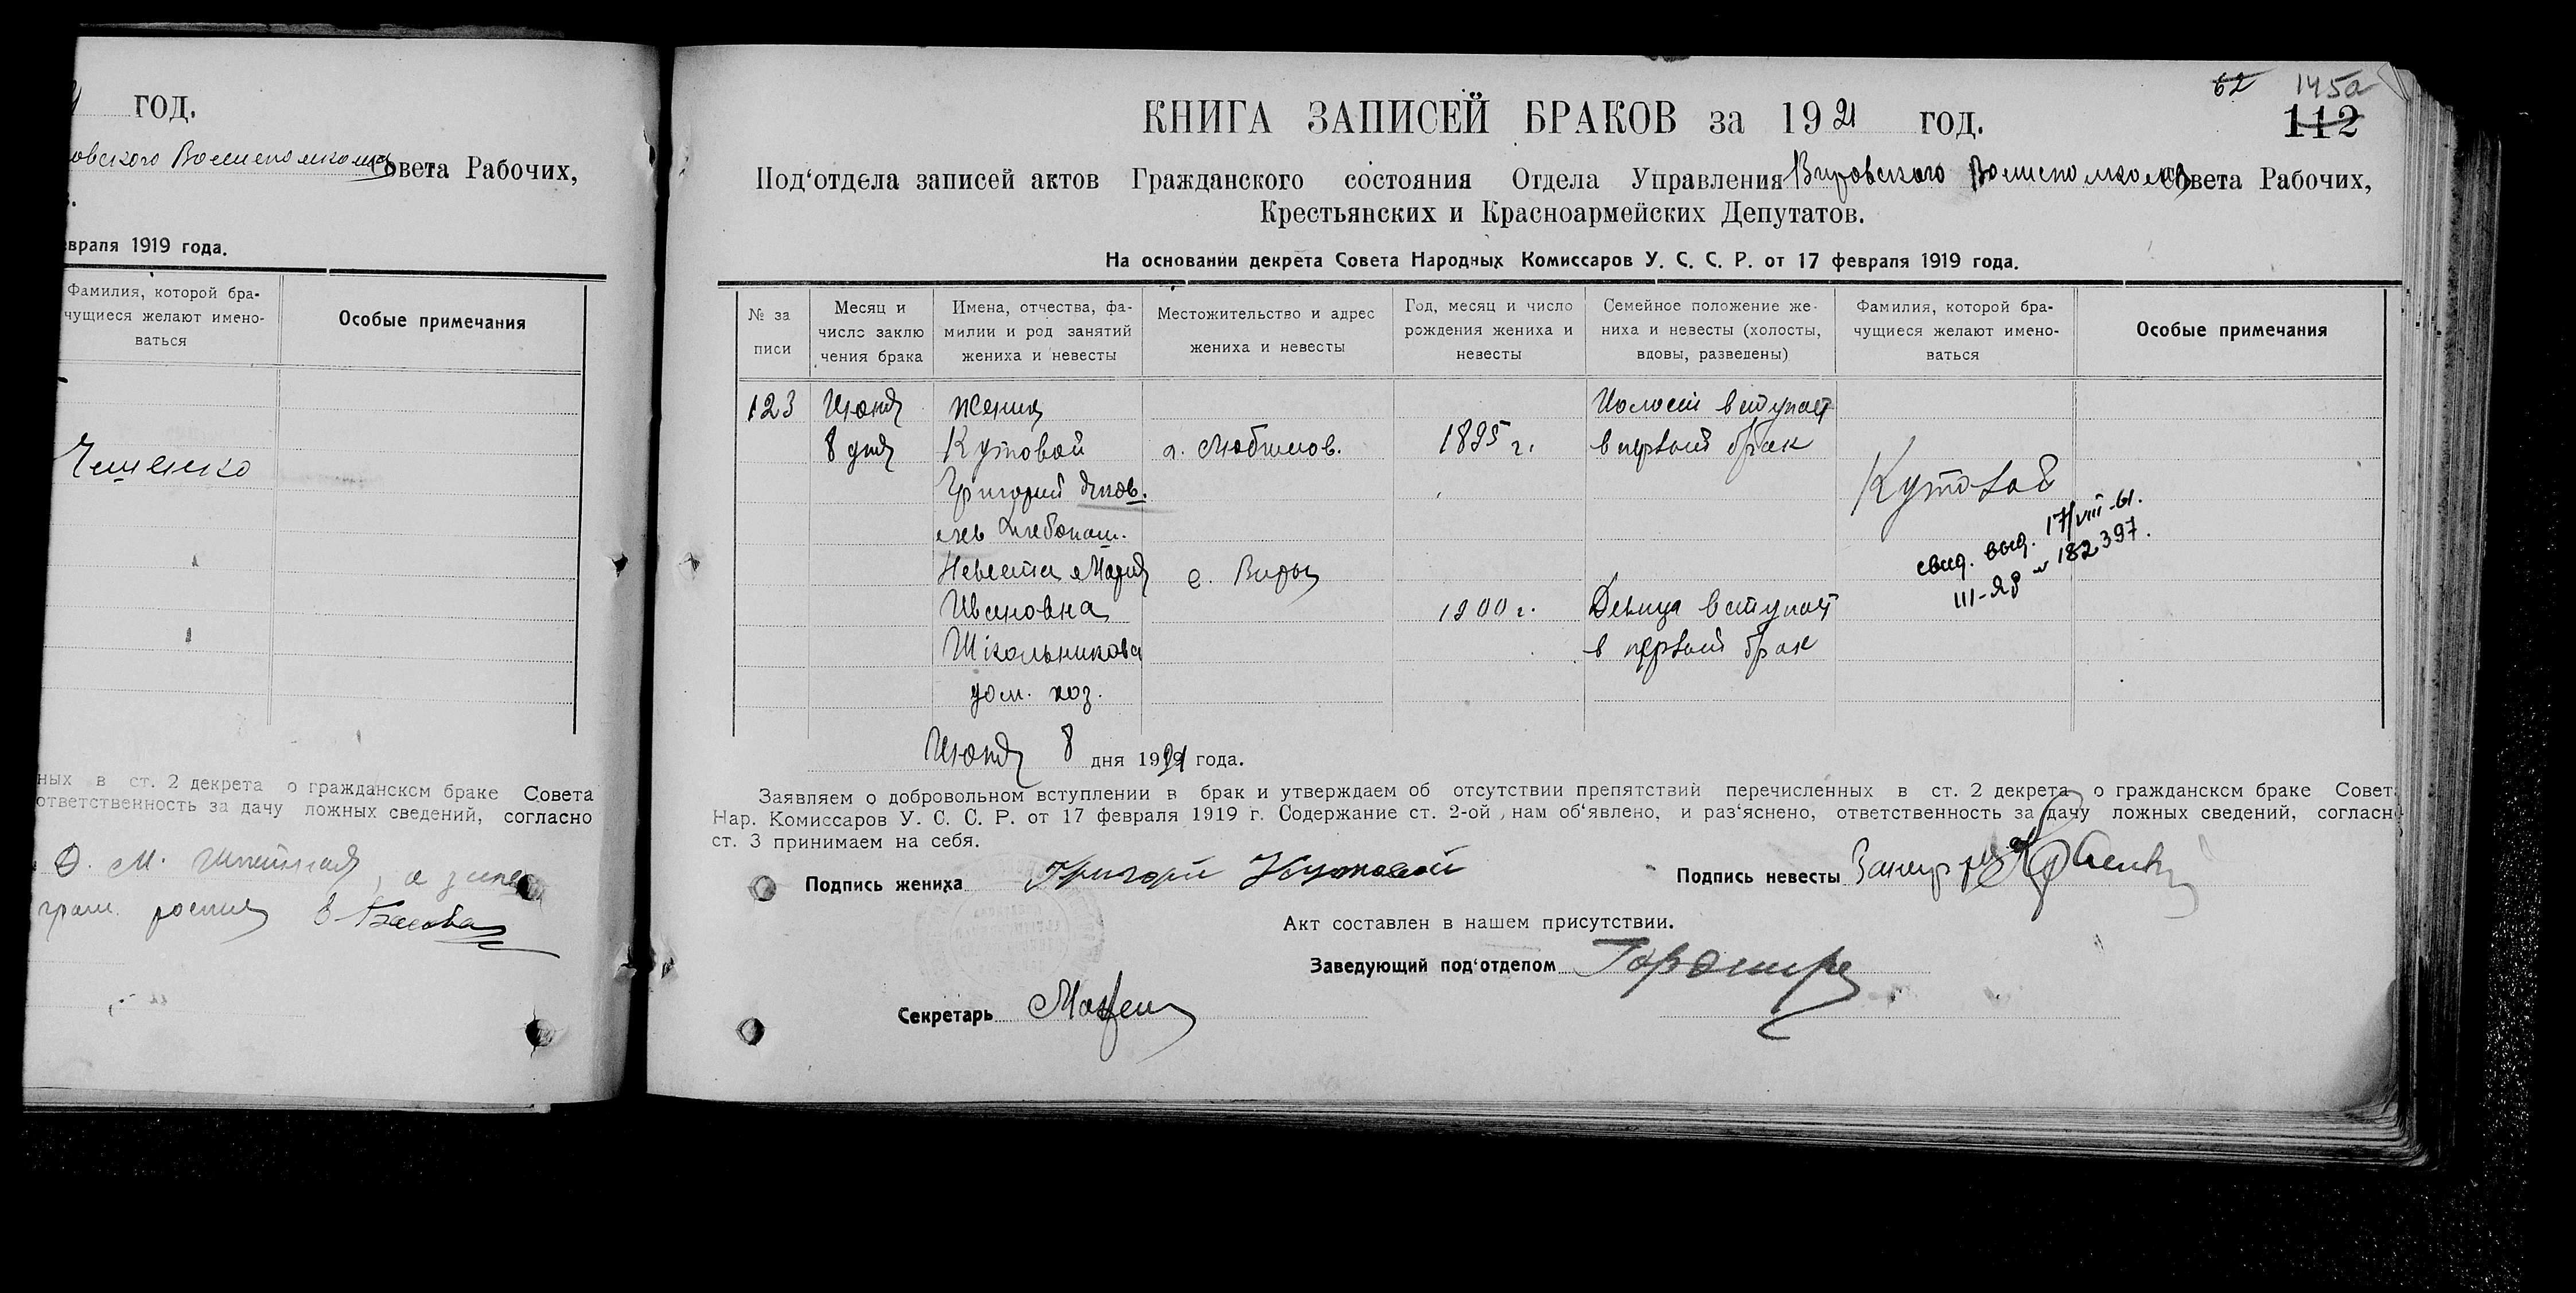 год.
овского Волисполкома Совета Рабочих,
евраля 1919 года.
Фамилия, которой бра-
чущиеся желают имено-
ваться
Особые примечания
ных в ст. 2 декрета о гражданском браке Совета
ответственность за дачу ложных сведений, согласно
62 145а
112
КНИГА ЗАПИСЕЙ БРАКОВ за 1921 год.
Под‘отдела записей актов Гражданского состояния Отдела Управления Вировского Волисполкома Совета Рабочих,
Крестьянских и Красноармейских Депутатов.
На основании декрета Совета Народных Комиссаров У. С. С. Р. от 17 февраля 1919 года.
№ за
писи
Месяц и
число заклю
чения брака
Имена, отчества, фа-
милии и род занятий
жениха и невесты
Местожительство и адрес
жениха и невесты
Год, месяц и число
рождения жениха и
невесты
Семейное положение же-
ниха и невесты (холосты,
вдовы, разведены)
Фамилия, которой бра-
чущиеся желают имено-
ваться
Особые примечания
123 Июня Жених Холост вступает
8 дня Кутовой х. Любимов. 1895 г. в первый брак
Григорий Яков. Кутовой
евич Хлебопаш.
свид. выд. 17/VIII-61.
III-ЯР № 182397.
Невеста Мария с. Виры
Ивановна 1900 г. Девица вступает
Школьникова в первый брак
дом. хоз.
Июня 8 дня 1921 года.
Заявляем о добровольном вступлении в брак и утверждаем об отсутствии препятствий перечисленных в ст. 2 декрета о гражданском браке Совет
Нар. Комиссаров У. С. С. Р. от 17 февраля 1919 г. Содержание ст. 2-ой, нам об‘явлено, и раз‘яснено, ответственность за дачу ложных сведений, согласн
ст. 3 принимаем на себя.
Подпись жениха Григори Кутовой
Подпись невесты
Акт составлен в нашем присутствии.
Заведующий под‘отделом
Секретарь